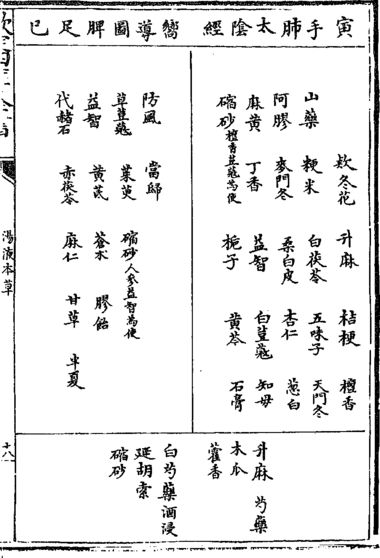 寅 手肺太陰經 嚮導圖 脾足巳
欵冬花 升麻 桔梗 檀香
山藥 粳米 白茯苓 五味子 天門冬
阿膠 麥門冬 桑白皮 杏仁 葱白
麻黃 丁香 益智 白荳蔲 知母
縮砂檀香荳蔲爲使 梔子 黃芩 石膏
防風 當歸
草荳蔲 茱萸 縮砂人參益智爲使
益智 黃芪 蒼朮 膠飴
代赭石 赤茯苓 麻仁 甘草 半夏
升麻 芍藥
木瓜
藿香
白芍藥酒浸
延胡索
縮砂
湯液本草
十八